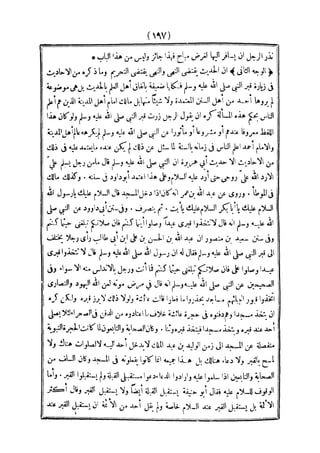 (١٩٧)
نذر الرجل ان يسافر اليها لغرض مباح فهذا جائز وليس من هذا الباب *
﴿ الوجه الثاني ﴾ ان الحديث يقتضى النهى والنهى يقتضى التحريم وما ذكره من الاحاديث
فى زيارة قبر النبي صلى الله عليه وسلم فكلها ضعيفة باتفاق أهل العلم بالحديث بل هى موضوعة
لم يروها أحد من أهل السنن المعتمدة ولا شيئا منها بل مالك امام أهل المدينة الذين هم أعلم
الناس بحكم هذه المسألة كره ان يقول الرجل زرت قبر النبي صلى الله عليه وسلم ولو كان هذا
اللفظ معروفا عندهم أو مشروعا أو مأثورا عن النبي صلى الله عليه وسلم لم يكرهه عالم أهل المدينة
والامام أحمد اعلم الناس فى زمانه بالسنة لما سئل عن ذلك لم يكن عنده ما يعتمد عليه فى ذلك
من الاحاديث الا حديث أبي هريرة ان النبي صلى الله عليه وسلم قال مامن رجل يسلم على
الارد الله على روحى حتى أرد عليه السلام وعلى هذا اعتمد أبو داود فى سننه . وكذلك مالك
فى الموطأ . وروى عن عبد الله بن عمر انه كان اذا دخل المسجد قال السلام عليك يارسول الله
السلام عليك يا أبا بكر السلام عليك يا أبت . ثم ينصرف . وفى سنن أبى داود عن النبي صلى
الله عليه وسلم انه قال لا تتخذوا قبرى عيدا وصلوا أينما كنتم فان صلاتكم تبلغنى حيثما كنتم
وفى سنن سعيد بن منصور ان عبد الله بن الحسن بن على ابن أبى طالب رأى رجلا يختلف
الى قبر النبي صلى الله عليه وسلم فقال له ان رسول الله صلى الله عليه وسلم قال لا تتخذوا قبرى
عيدا وصلوا على فان صلاتكم تبلغنى حيثما كنتم فما أنت ورجل بالاندلس منه الا سواء وفى
الصحيحين عن النبي صلى الله عليه وسلم انه قال فى مرض موته لعن الله اليهود والنصارى
اتخذوا قبور انبيائهم مساجد يحذر ما فعلوا قالت عائشة ولولا ذلك لا برز قبره ولكن كره
ان يتخذ مسجدا وهم دفنوه فى حجرة عائشة خلاف ما اعتادوه من الدفن فى الصحراء لئلا يصلى
أحد عند قبره ويتخذ مسجدا فيتخذ قبره وثنا . وكان الصحابة والتابعون لما كانت الحجرة النبوية
منفصلة عن المسجد الى زمن الوليد بن عبد الملك لا يدخل أحد اليه لا لصلوات هناك ولا
تمسح بالقبر ولا دعاء هنالك بل هذا جميعه انما كانوا يفعلونه فى المسجد وكان السلف من
الصحابة والتابعين اذا سلموا عليه وارادوا الدعاء دعوا مستقبلى القبلة ولم يستقبلوا القبر . وأما
الوقوف للسلام عليه فقال أبو حنيفة يستقبل القبلة أيضا ولا يستقبل القبر وقال أكثر
الائمة بل يستقبل القبر عند السلام خاصة ولم يقل أحد من الأئمة ان يستقبل القبر عند